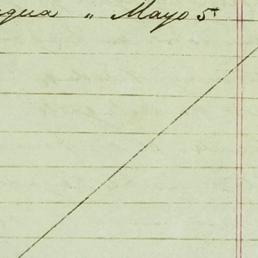 agua " Mayo 5